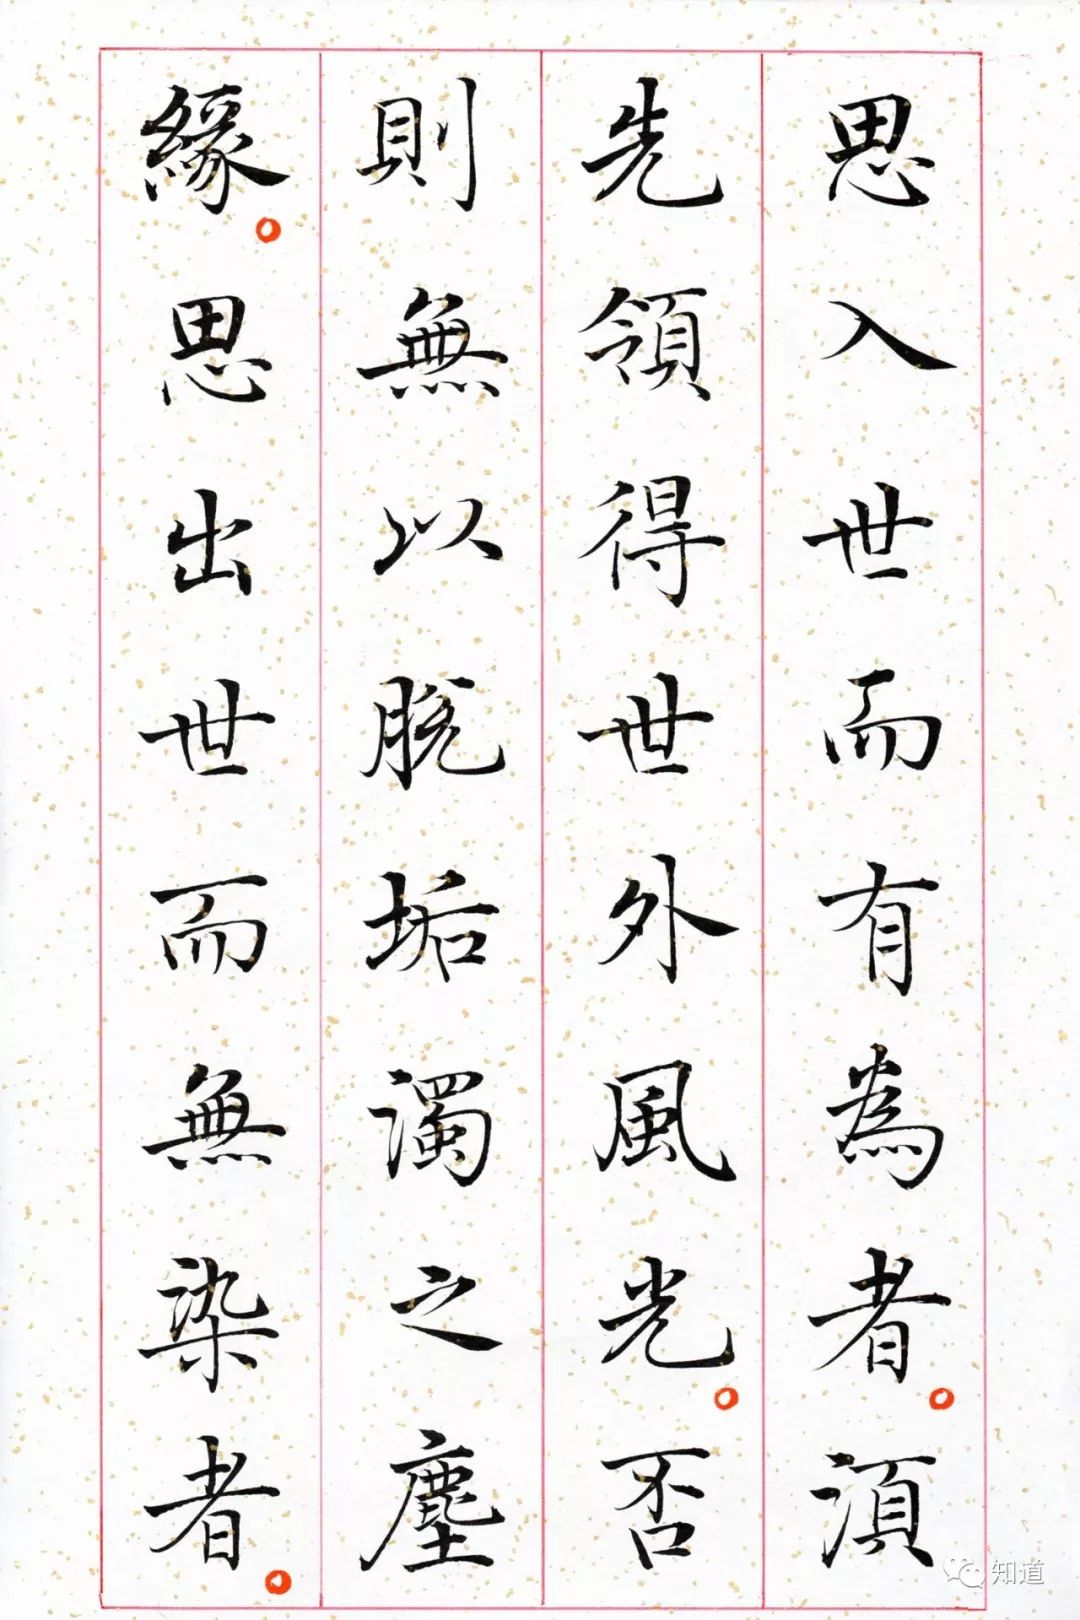 思入世而有為者。須
先領得世外風光。否
則無以脫垢濁之塵
緣。思出世而無染者。
知道